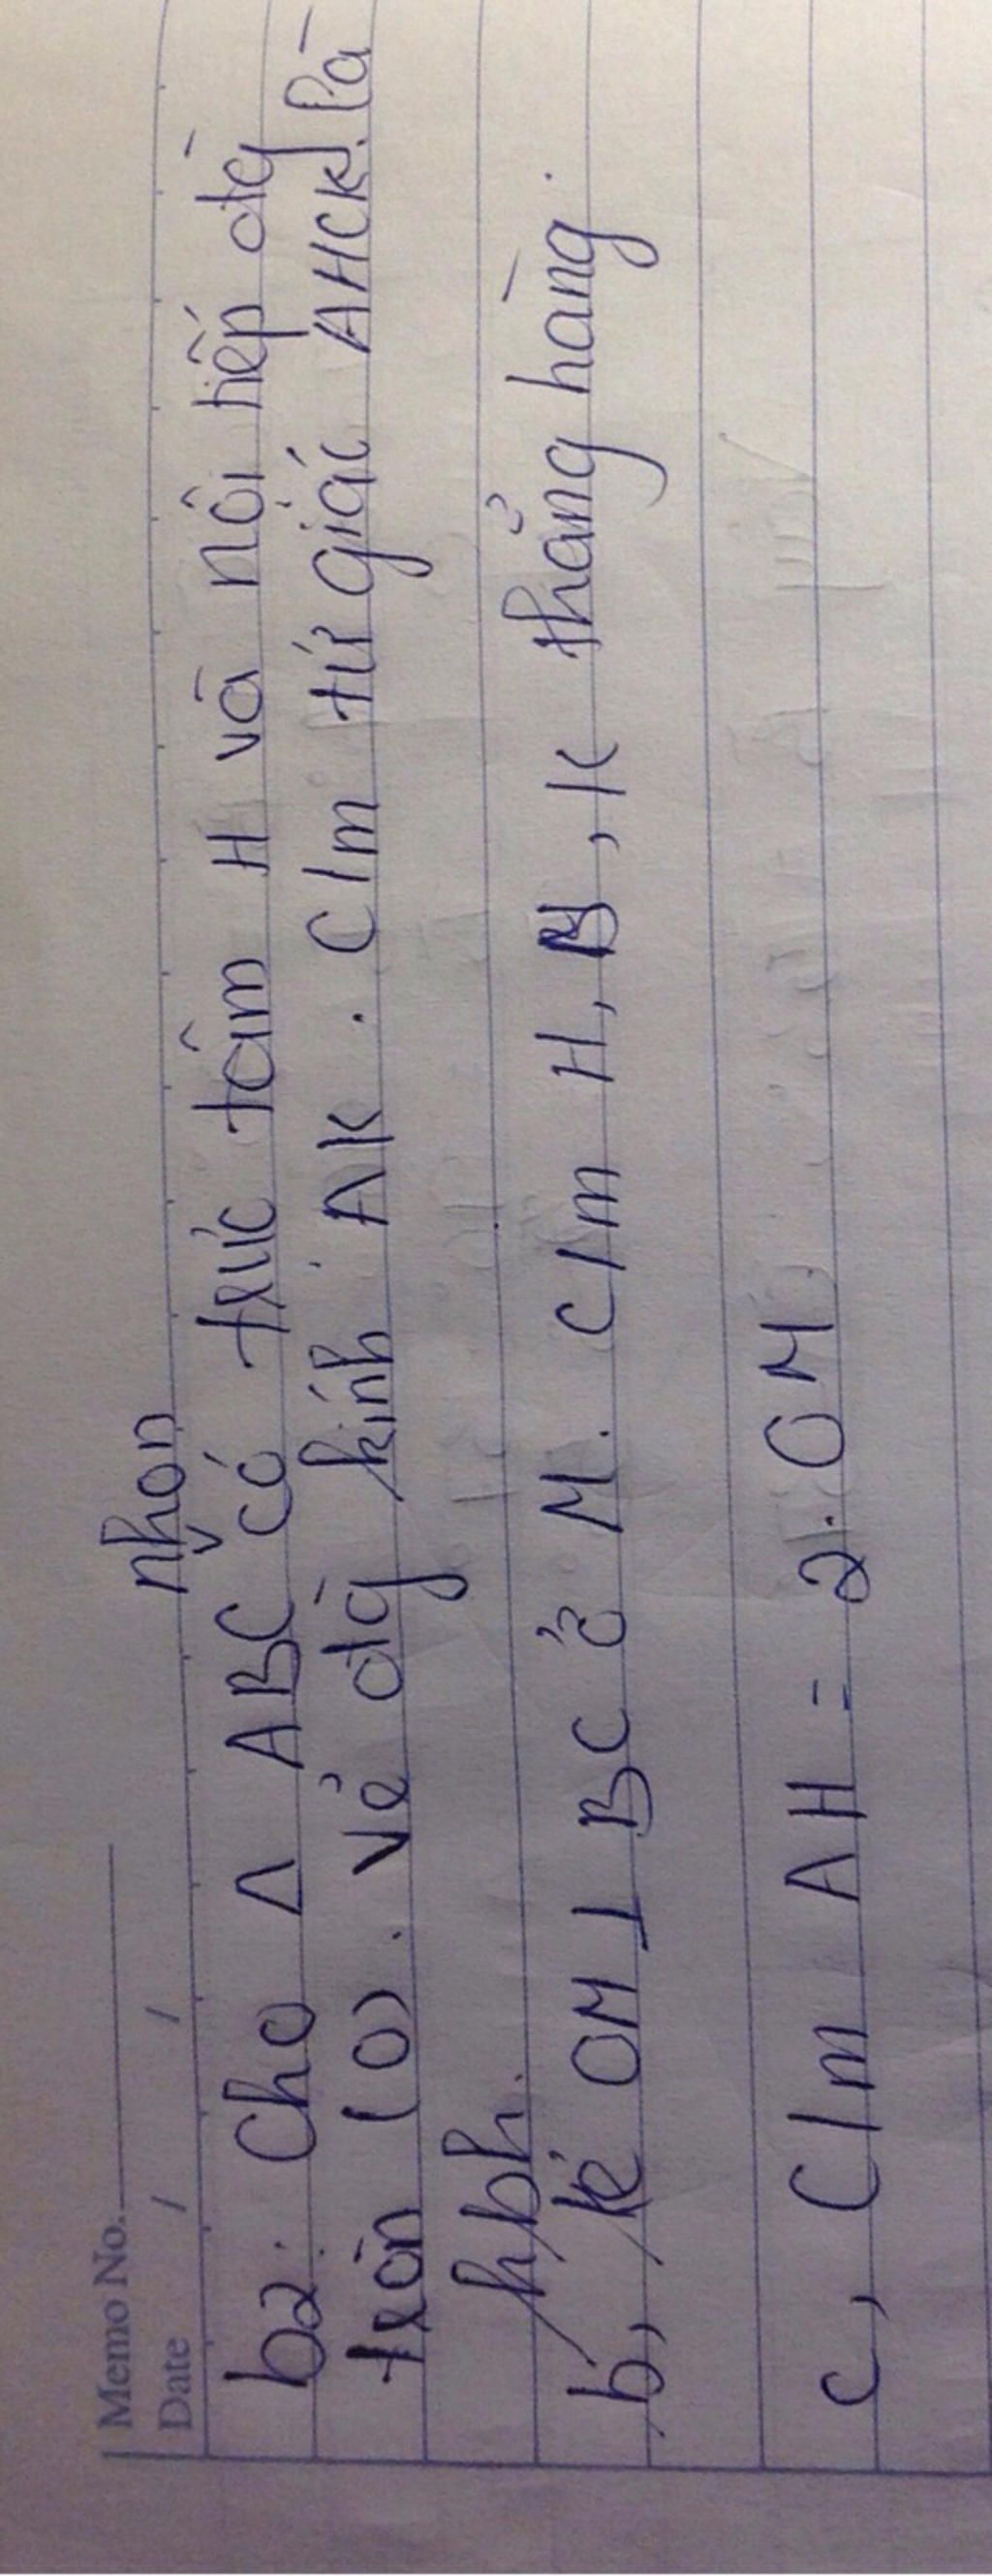 Memo No.
Date / /
nhọn
b2: Cho Δ ABC có trực tâm H và nội tiếp đg
tròn (O). Vẽ đg kính AK. C/m tứ giác AHCK là
hbh.
b, kẻ OM ⊥ BC ở M. C/m H, M, K thẳng hàng.
c, C/m AH = 2.OM